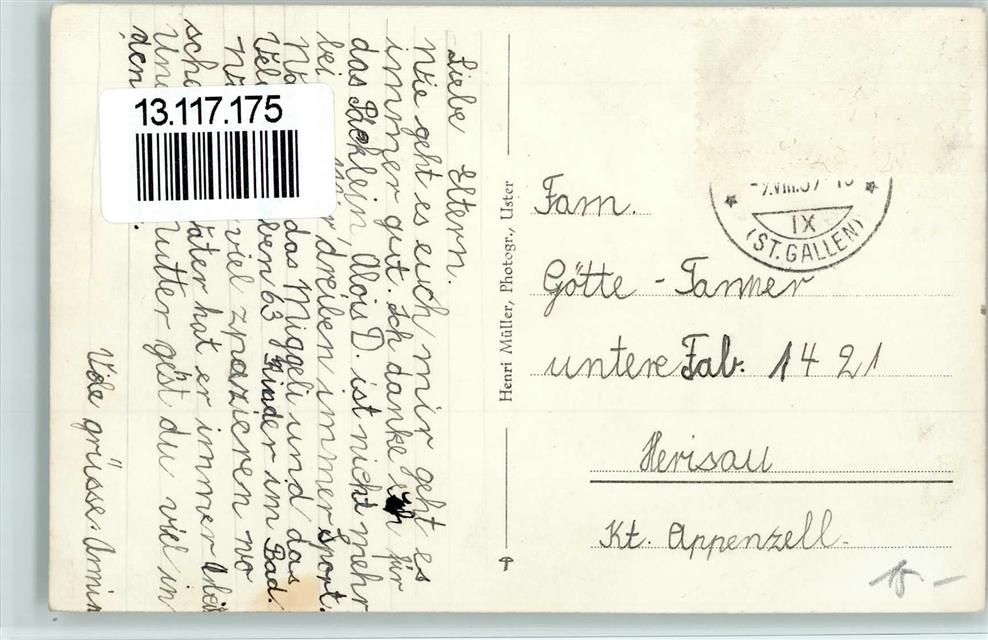 13.117.175
Liebe Eltern.
Wie geht es euch, mir geht es
immer gut. Ich danke euch für
das Päcklein, Alois D. ist nicht mehr
bei mir, dreiben immer Sport.
das Miggeli und das
ben 63 Kinder im Bad.
viel zpazieren no
ater hat er immer
Und Mutter gëst du viel in
den
Viele grüsse. Armin
Henri Müller, Photogr., Uster
IX
(ST. GALLEN)
Fam.
Götte - Tanner
untere Fab. 1421
Herisau
Kt. Appenzell.
15 -